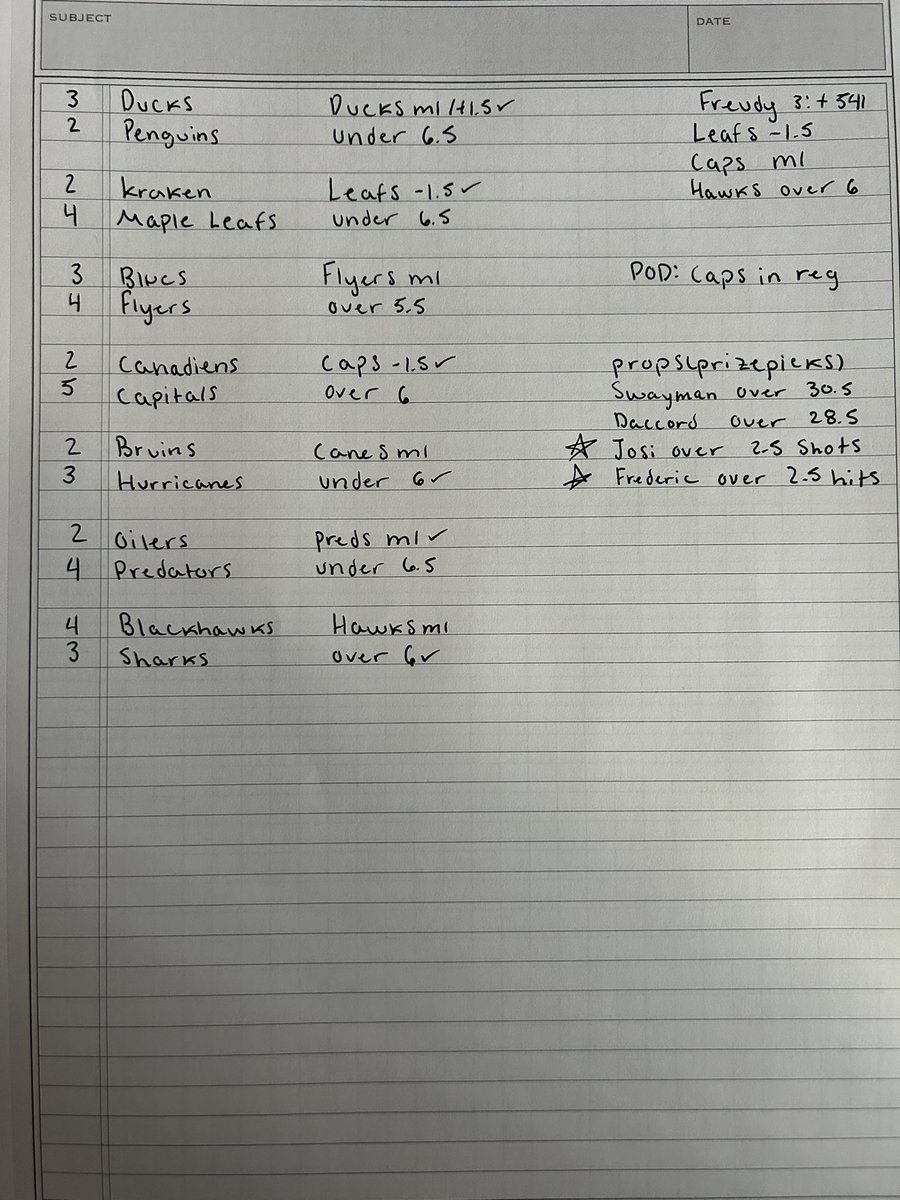 SUBJECT
DATE
3 Ducks Ducks ml /+1.5 ✓ Freudy 3: + 541
2 Penguins under 6.5 Leafs -1.5
Caps ml
2 Kraken Leafs -1.5 ✓ Hawks over 6
4 Maple Leafs under 6.5
3 Blues Flyers ml POD: Caps in reg
4 Flyers over 5.5
2 Canadiens Caps -1.5 ✓ props(prizepicks)
5 Capitals over 6 Swayman over 30.5
Daccord over 28.5
2 Bruins Canes ml ☆ Josi over 2.5 Shots
3 Hurricanes under 6 ✓ ☆ Frederic over 2.5 hits
2 Oilers preds ml ✓
4 Predators under 6.5
4 Blackhawks Hawks ml
3 Sharks over 6 ✓